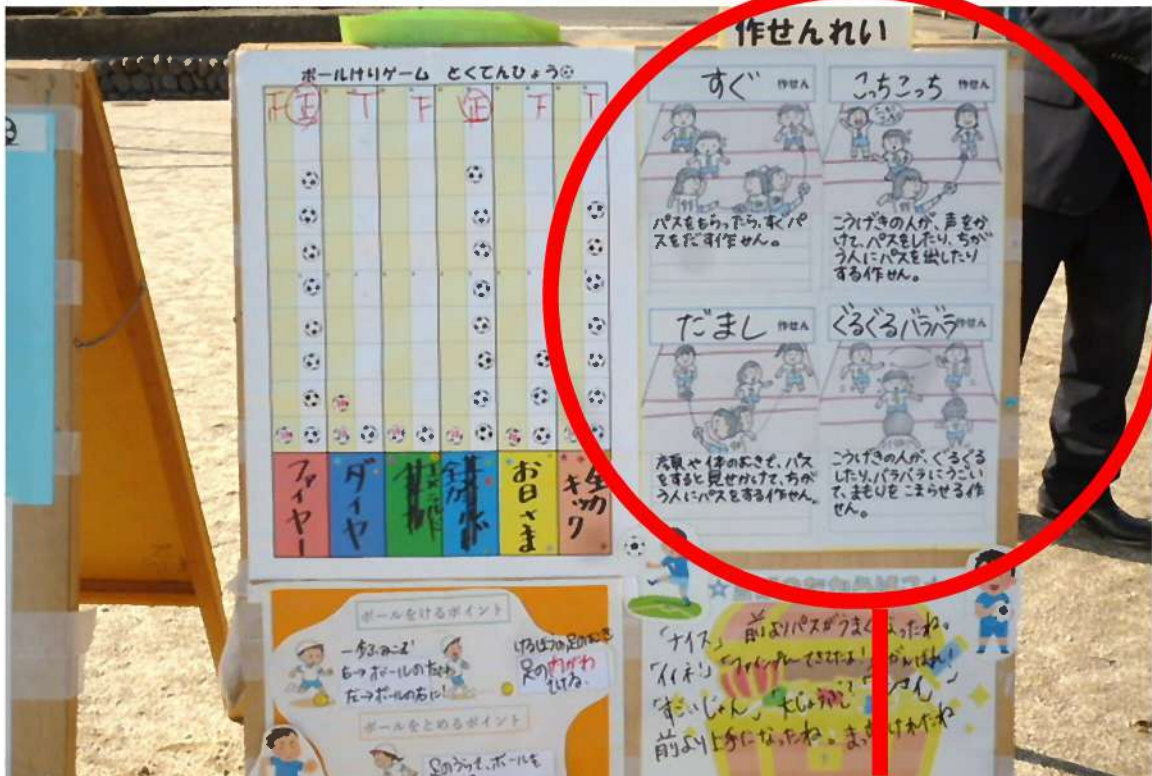 作せんれい
ボールけりゲーム とくてんひょう
正
正
ファイヤー
ダイヤ
お日さま
キック
すぐ 作せん
パスをもらったら、すぐパ
スをだす作せん。
こちこっち 作せん
こうげきの人が、声をか
けて、パスをしたり、ちが
う人にパスを出したり
する作せん。
だまし 作せん
顔や体のむきで、パス
をすると見せかけて、ちが
う人にパスをする作せん。
ぐるぐるバラバラ作せん
こうげきの人が、ぐるぐる
したり、バラバラにうごい
て、まもりをこまらせる作
せん。
ボールをけるポイント
一歩ふみこむ
右→ボールの左に
左→ボールの右に!
けるほうの足のむき
足の
ける。
ボールをとめるポイント
足のうらで、ボールを
「ナイス」 前よりパスがうまくなったね。
「イイネ!」「ファインプレー
がんばれ!
「すごいじゃん」
前より上手になったね。